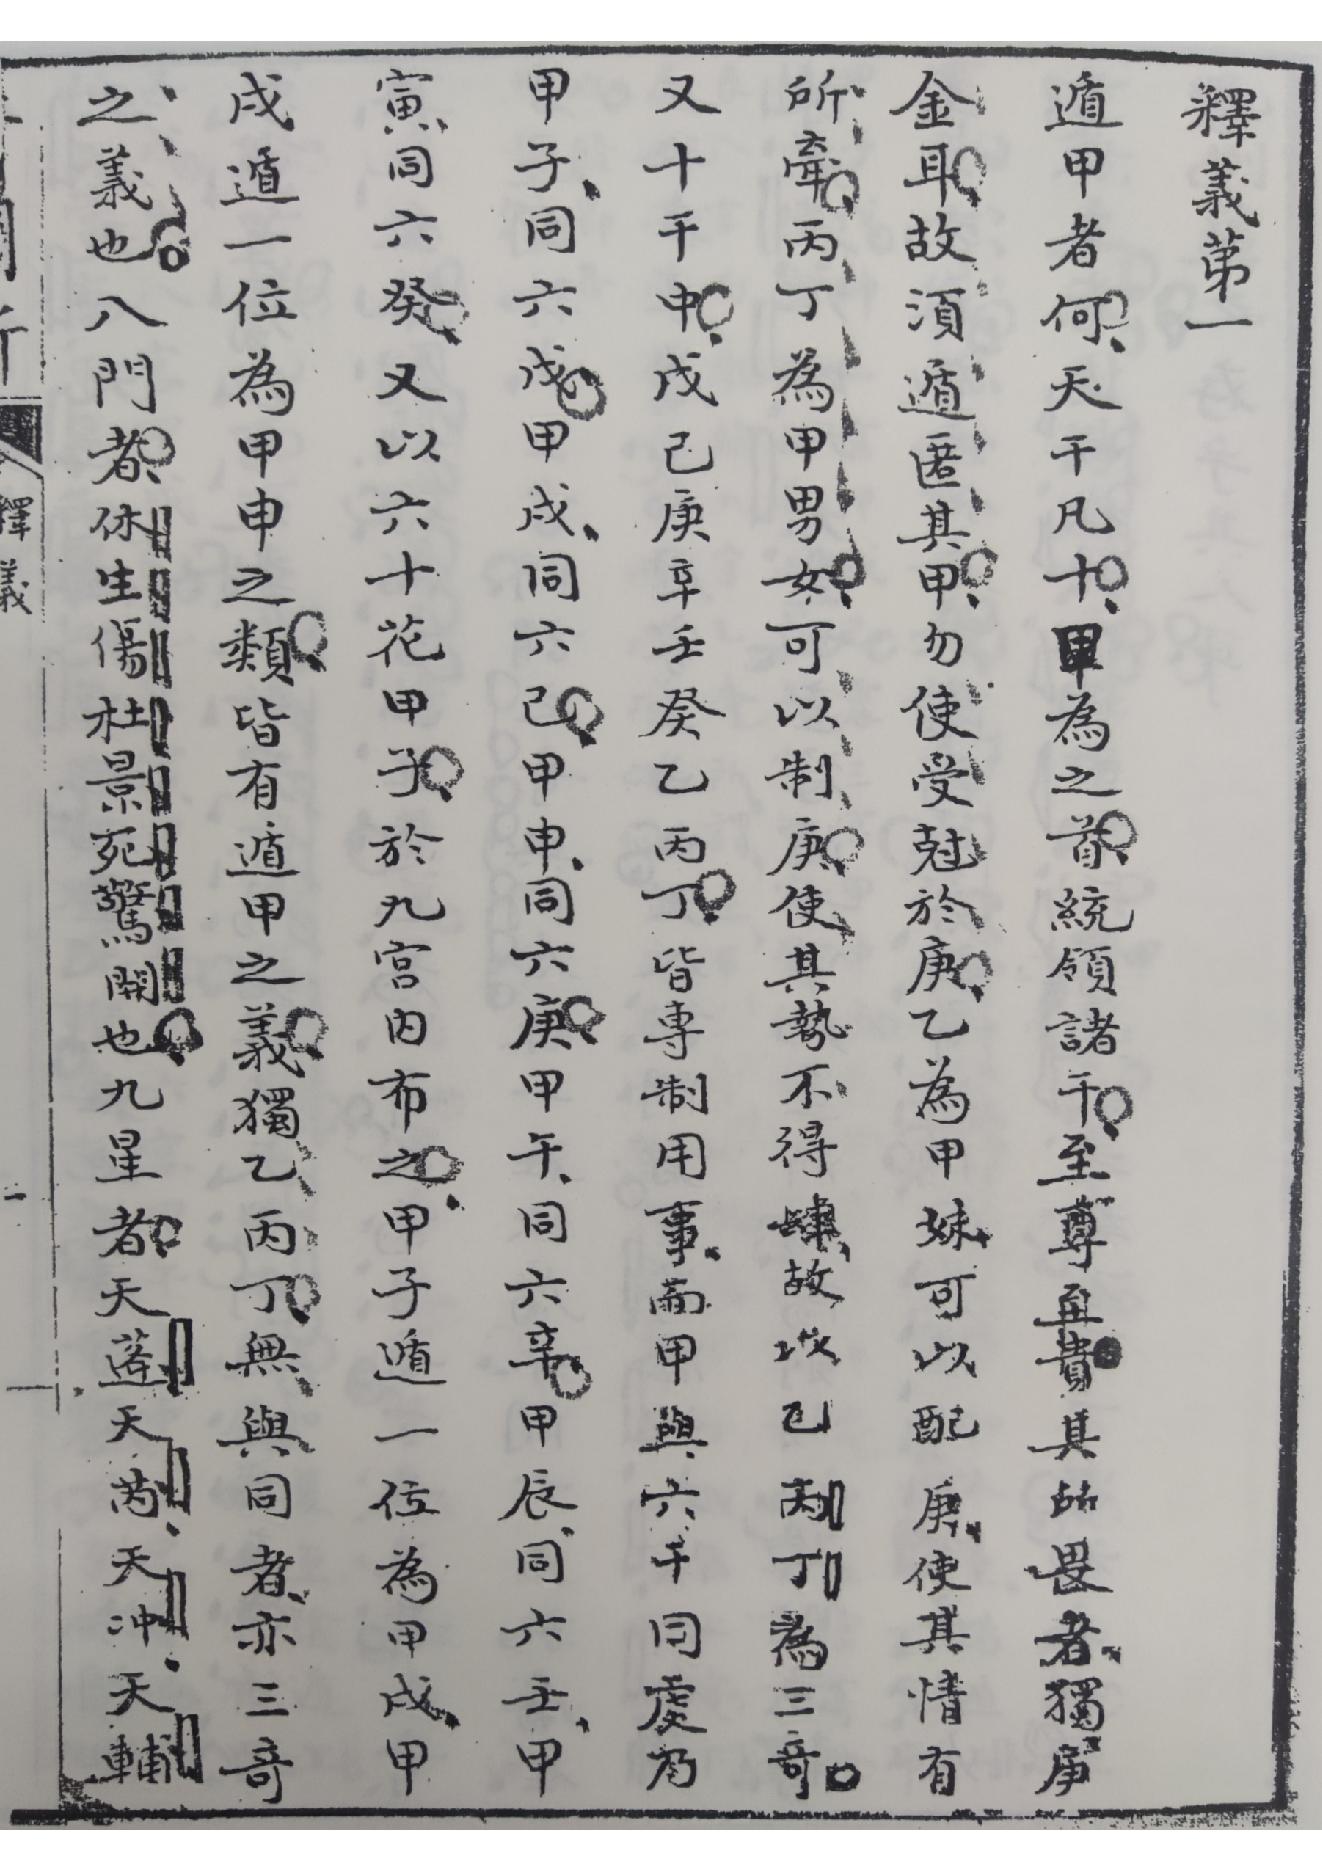 釋義第一
遁甲者何天干凡十甲為之首統領諸干至尊至貴其所畏者獨庚
金耳故須遁匿其甲勿使受尅於庚乙為甲妹可以配庚使其情有
所牽丙丁為甲男女可以制庚使其勢不得肆故以乙丙丁為三奇
又十干中戊己庚辛壬癸乙丙丁皆專制用事而甲與六干同處乃
甲子同六戊甲戌同六己甲申同六庚甲午同六辛甲辰同六壬甲
寅同六癸又以六十花甲子於九宮內布之甲子遁一位為甲戌甲
戌遁一位為甲申之類皆有遁甲之義獨乙丙丁無與同者亦三奇
之義也八門者休生傷杜景死驚開也九星者天蓬天芮天冲天輔
釋義
一